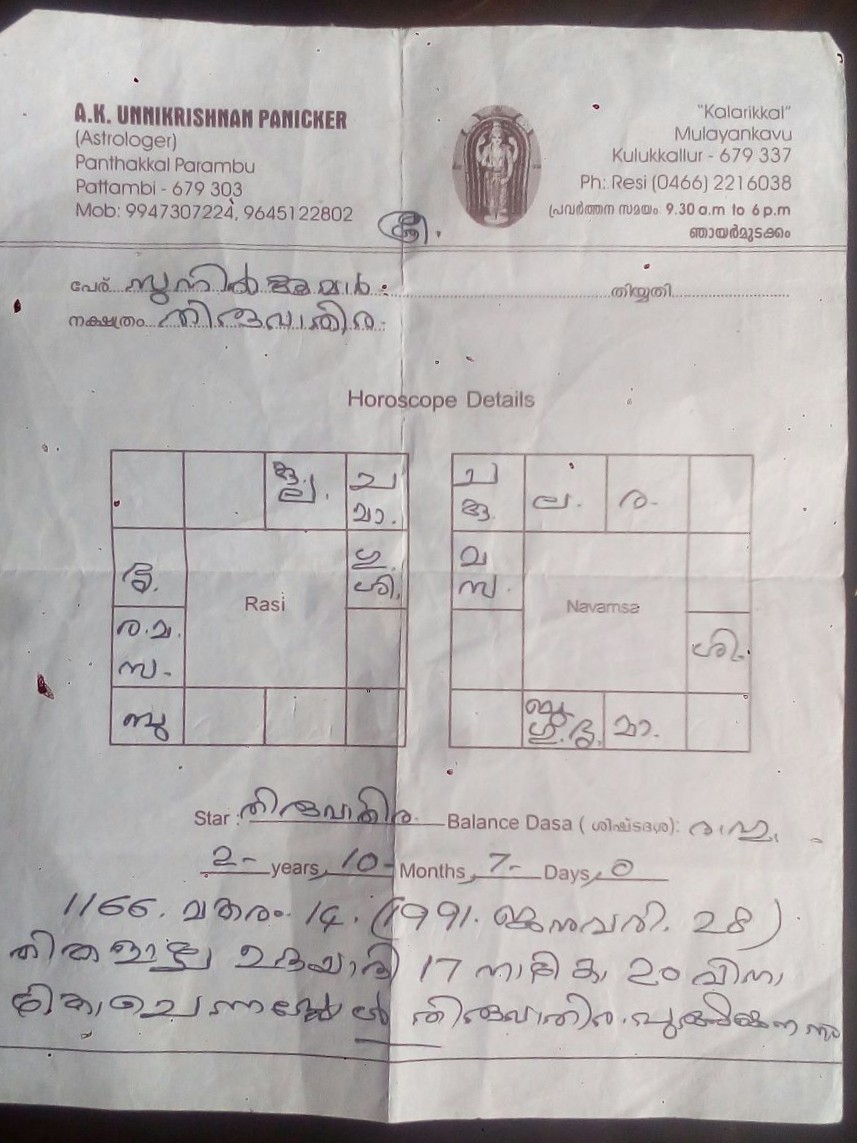 A.K. UNNIKRISHNAN PANICKER
(Astrologer)
Panthakkal Parambu
Pattambi - 679 303
Mob: 9947307224, 9645122802
"Kalarikkal"
Mulayankavu
Kulukkallur - 679 337
Ph: Resi (0466) 2216038
പ്രവർത്തന സമയം 9.30 a.m to 6 p.m
ഞായർമുടക്കം
ശ്രീ.
പേര് സുനിൽകുമാർ തിയ്യതി
നക്ഷത്രം തിരുവാതിര
Horoscope Details
കു. ല.
ച
മാ.
ഗു.
ശി.
ര. മ.
സ.
Rasi
ച
ല.
ര.
മ
സ.
Navamsa
ശി.
മാ.
Star : തിരുവാതിര Balance Dasa ( ശിഷ്ടദശ): രാഹു
2 - years, 10 - Months, 7 - Days, 0
1166. മകരം. 14. (1991. ജനുവരി. 28)
തിങ്കളാഴ്ച ഉദയാൽ 17 നാഴിക 20 വിനാ
ഴിക തിരുവാതിര